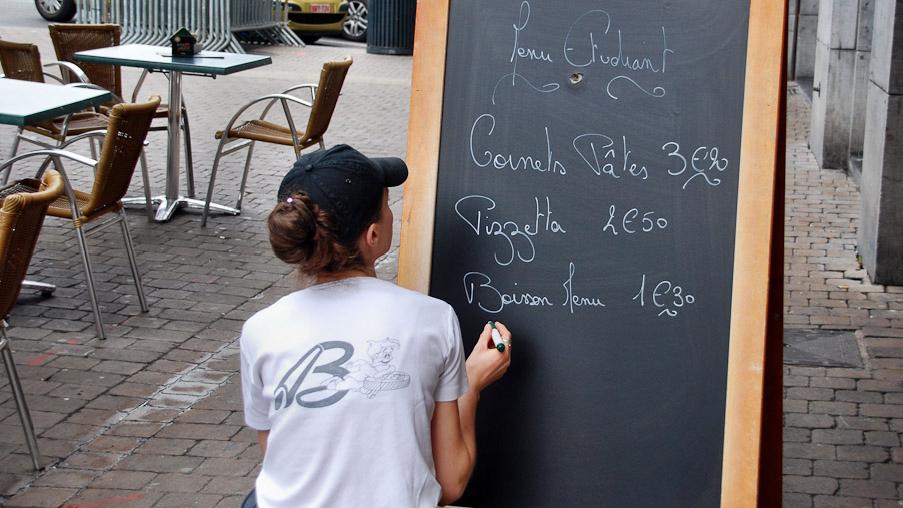 Menu Etudiant
Cornets Pâtes 3€90
Pizzetta 2€50
Boisson Menu 1€30
AB